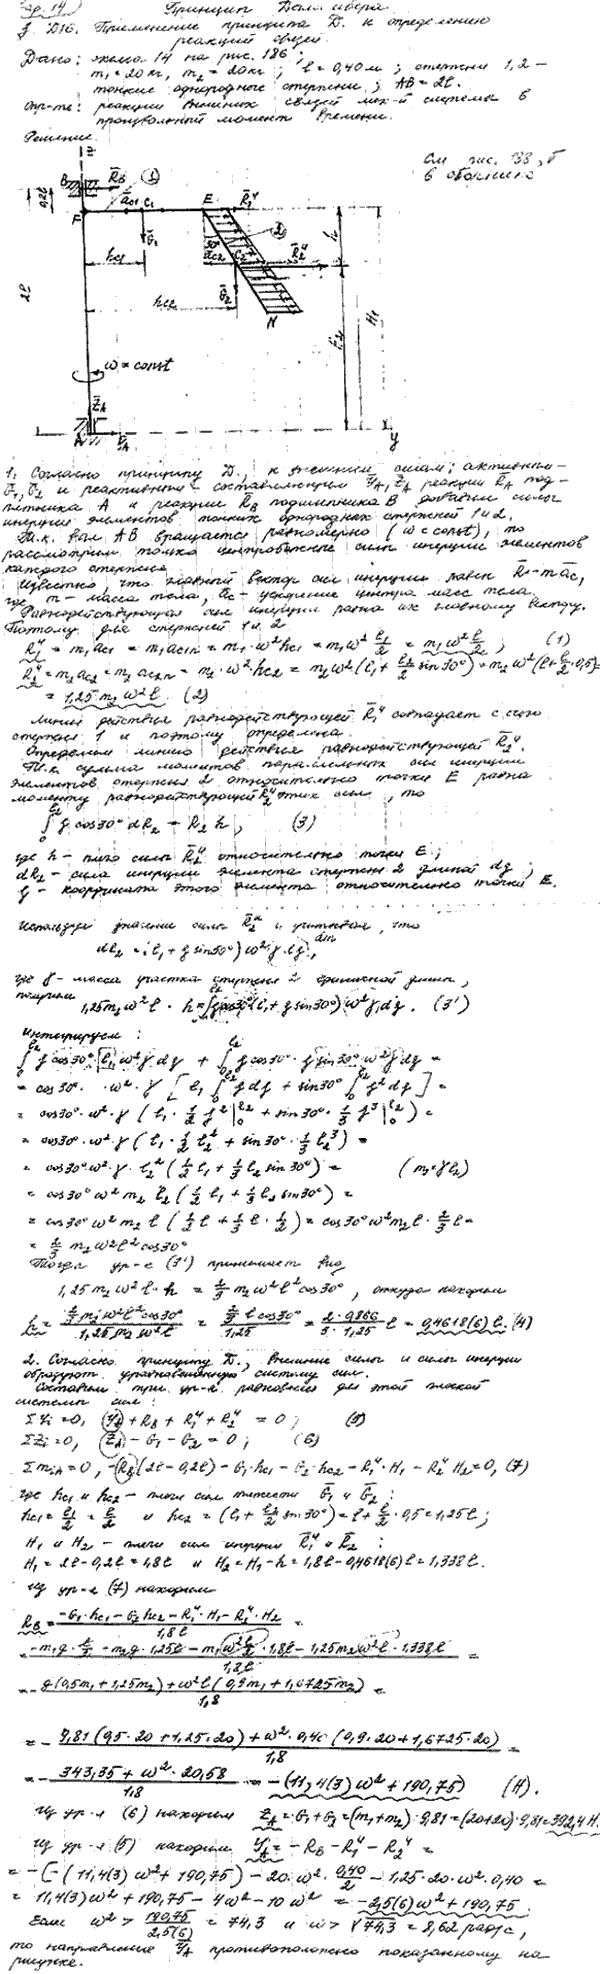 Принцип Даламбера.
§. D16. Применение принципа D. к определению
реакций связей.
Дано: схема 14 на рис. 186;
m₁ = 20 кг, m₂ = 20 кг; l = 0,40 м; стержни 1,2 –
тонкие однородные стержни; AB = 2l.
Опр-ть: реакции внешних связей мех-й системы в
произвольный момент времени.
Решение.
См. рис. 138, б
B
z
R̄_B
ā_c1
C₁
E
R̄₁ᵘ
0,2l
F
Ḡ₁
h_c1
30°
ā_c2
C₂
R̄₂ᵘ
h
h_c2
Ḡ₂
2l
N
H₂
H₁
ω = const
Z̄_A
A
y
1. Согласно принципу D., к внешним силам: активным –
Ḡ₁, Ḡ₂ и реактивным – составляющим Ȳ_A, Z̄_A реакции R̄_A под-
пятника A и реакции R̄_B подшипника B добавим силы
инерции элементов тонких однородных стержней 1 и 2.
Т.к. вал AB вращается равномерно (ω = const), то
рассмотрим только центробежные силы инерции элементов
каждого стержня.
Известно, что главный вектор сил инерции равен R̄ = mā_c,
где m – масса тела, a_c – ускорение центра масс тела.
Равнодействующая сил инерции равна их главному вектору.
Поэтому для стержней 1 и 2
R₁ᵘ = m₁a_c1 = m₁a_c1n = m₁·ω²h_c1 = m₁ω² l₁/2 = m₁ω² l/2; (1)
R₂ᵘ = m₂a_c2 = m₂a_c2n = m₂·ω²·h_c2 = m₂ω²(l₁ + l₂/2 sin30°) = m₂ω²(l + l/2·0,5) =
= 1,25 m₂ω²l. (2)
Линия действия равнодействующей R̄₁ᵘ совпадает с осью
стержня 1 и поэтому определена.
Определим линию действия равнодействующей R̄₂ᵘ.
Т.к. сумма моментов параллельных сил инерции
элементов стержня 2 относительно точки E равна
моменту равнодействующей R̄₂ᵘ этих сил, то
∫₀^l₂ ξ cos30° dR₂ = R₂h, (3)
где h – плечо силы R̄₂ᵘ относительно точки E;
dR₂ – сила инерции элемента стержня 2 длиной dξ;
ξ – координата этого элемента относительно точки E.
Используя значение силы R̄₂ᵘ и учитывая, что
dR₂ = (l₁ + ξ sin30°) ω² γ dξ,
dm
где γ – масса участка стержня 2 единичной длины,
получим
1,25 m₂ω²l · h = ∫₀^l₂ ξcos30°(l₁ + ξ sin30°) ω² γ dξ. (3')
Интегрируем:
∫₀^l₂ ξ cos30° l₁ ω² γ dξ + ∫₀^l₂ ξ cos30° · ξ sin30° ω² γ dξ =
= cos30° · ω² · γ [l₁ ∫₀^l₂ ξdξ + sin30° ∫₀^l₂ ξ²dξ] =
= cos30° · ω² · γ (l₁ · ½ ξ²|₀^l₂ + sin30° · ⅓ ξ³|₀^l₂) =
= cos30° · ω² γ (l₁ · ½ l₂² + sin30° · ⅓ l₂³) =
= cos30° ω² · γ · l₂² (½ l₁ + ⅓ l₂ sin30°) = (m₂ = γl₂)
= cos30° ω² m₂ l₂ (½ l₁ + ⅓ l₂ sin30°) =
= cos30° ω² m₂ l (½ l + ⅓ l · ½) = cos30° ω² m₂ l · ⅔ l =
= ⅔ m₂ω²l² cos30°
Тогда ур-е (3') принимает вид
1,25 m₂ω²l · h = ⅔ m₂ω²l² cos30°, откуда находим
h = (⅔ m₂ω²l² cos30°)/(1,25 m₂ω²l) = (⅔ l cos30°)/1,25 = (2 · 0,866)/(3 · 1,25) l = 0,4618(6) l. (4)
2. Согласно принципу D., внешние силы и силы инерции
образуют уравновешенную систему сил.
Составим три ур-я равновесия для этой плоской
системы сил:
ΣY_i = 0, Y_A + R_B + R₁ᵘ + R₂ᵘ = 0; (5)
ΣZ_i = 0, Z_A – G₁ – G₂ = 0; (6)
Σm_iA = 0, –R_B(2l – 0,2l) – G₁·h_c1 – G₂·h_c2 – R₁ᵘ·H₁ – R₂ᵘ H₂ = 0, (7)
где h_c1 и h_c2 – плечи сил тяжести Ḡ₁ и Ḡ₂:
h_c1 = l₁/2 = l/2 и h_c2 = (l₁ + l₂/2 sin30°) = l + l/2 · 0,5 = 1,25l;
H₁ и H₂ – плечи сил инерции R̄₁ᵘ и R̄₂ᵘ:
H₁ = 2l – 0,2l = 1,8l и H₂ = H₁ – h = 1,8l – 0,4618(6) l = 1,338l.
Из ур-я (7) находим
R_B = (–G₁·h_c1 – G₂h_c2 – R₁ᵘ·H₁ – R₂ᵘ·H₂)/1,8l =
= (–m₁g · l/2 – m₂g · 1,25l – m₁ω² l/2 · 1,8l – 1,25m₂ω²l · 1,338l)/1,8l =
= – (g(0,5m₁ + 1,25m₂) + ω²l(0,9m₁ + 1,6725m₂))/1,8 =
= – (9,81(0,5·20 + 1,25·20) + ω²·0,40(0,9·20 + 1,6725·20))/1,8 =
= – (343,35 + ω²·20,58)/1,8 = –(11,4(3) ω² + 190,75) (Н).
Из ур-я (6) находим Z_A = G₁ + G₂ = (m₁ + m₂)·9,81 = (20+20)·9,81 = 392,4 Н.
Из ур-я (5) находим Y_A = –R_B – R₁ᵘ – R₂ᵘ =
= –(–(11,4(3) ω² + 190,75) – 20 ω² · 0,40/2 – 1,25·20·ω²·0,40 =
= 11,4(3) ω² + 190,75 – 4ω² – 10 ω² = –2,5(6) ω² + 190,75.
Если ω² > 190,75/2,5(6) = 74,3 и ω > √74,3 = 8,62 рад/с,
то направление Ȳ_A противоположно показанному на
рисунке.